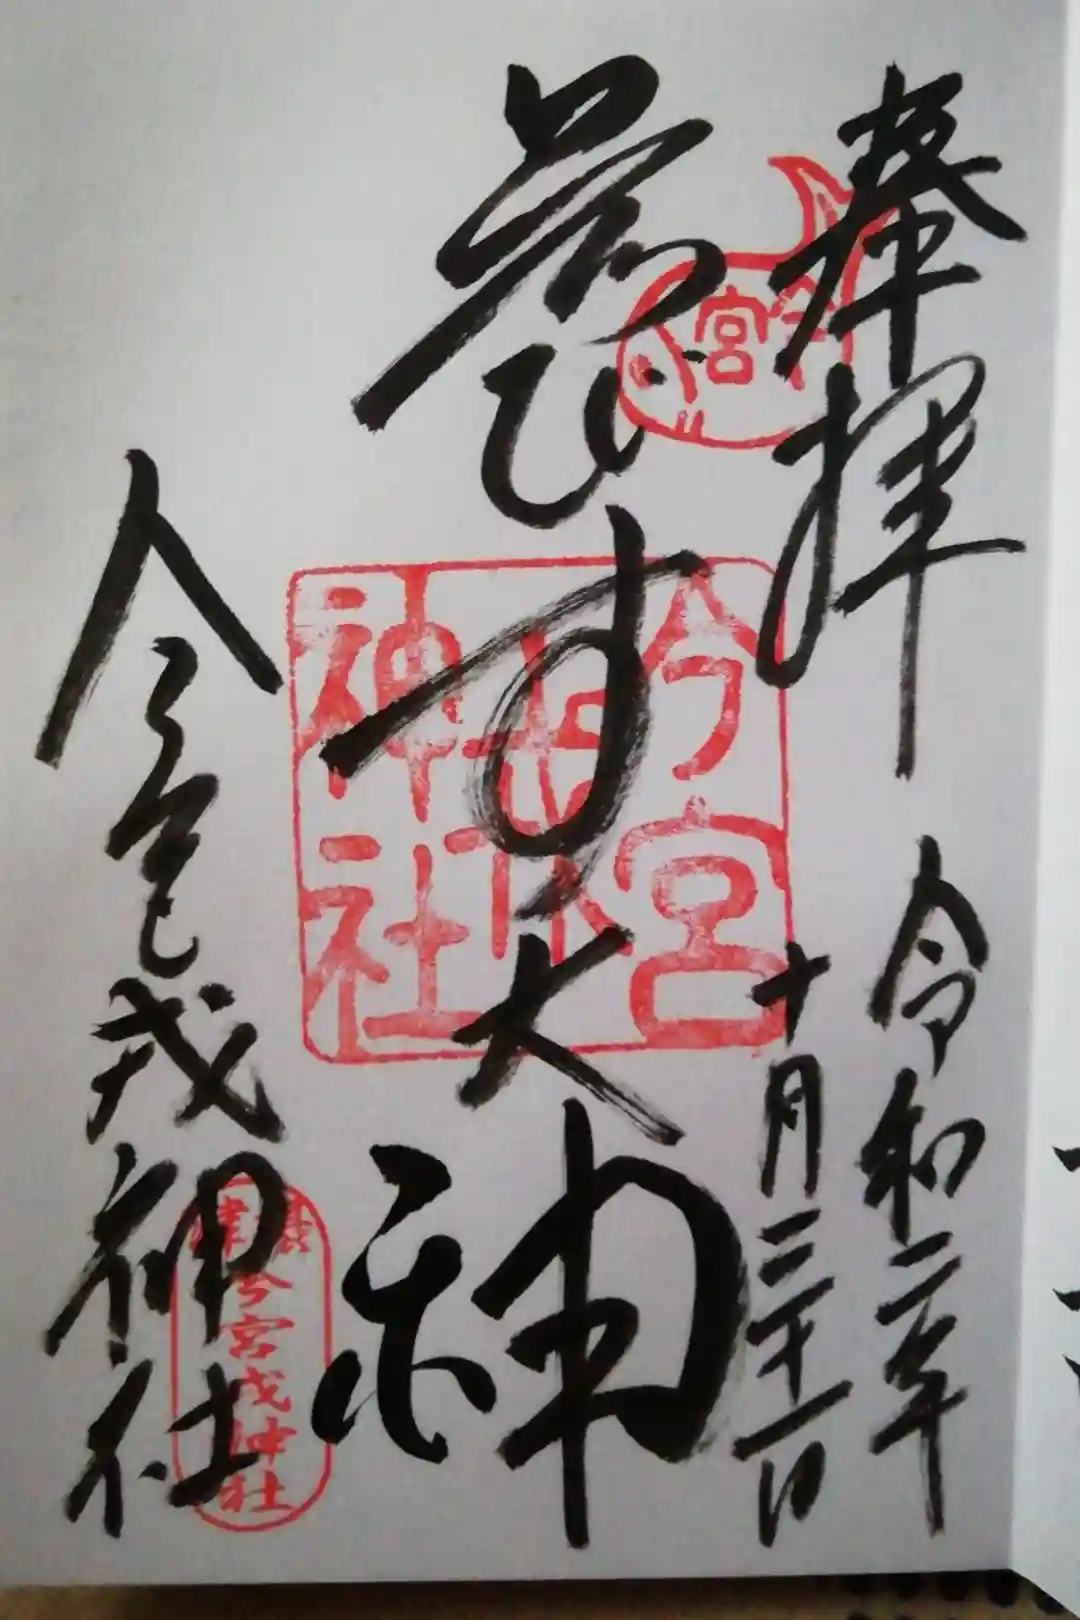 奉拝
令和二年
十月三十一日
今宮
ゑびす大神
今宮
神社
今宮戎神社
今宮戎神社